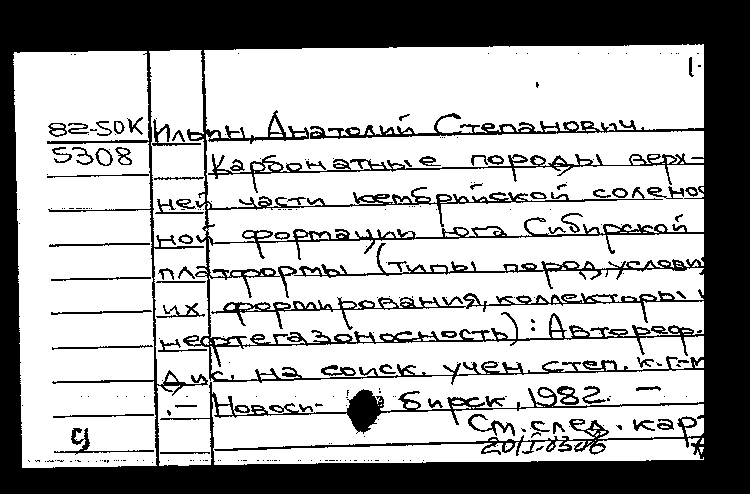 1.
82-50К Ильин, Анатолий Степанович.
5308 Карбонатные породы верх-
ней части кембрийской соленос
ной формации юга Сибирской
платформы (типы пород, условия
их формирования, коллекторы и
нефтегазоносность): Автореф.
Дис. на соиск. учен. степ. к.г-м
.— Новоси- бирск, 1982. —
См. след. карт
9